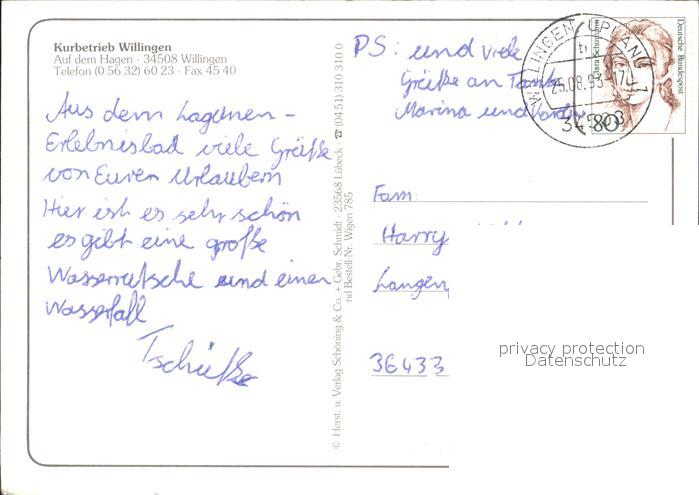 Kurbetrieb Willingen
Auf dem Hagen · 34508 Willingen
Telefon (0 56 32) 60 23 · Fax 45 40
Aus dem Lagunen-
Erlebnisbad viele Grüße
von Euren Urlaubern
Hier ist es sehr schön
es gibt eine große
Wasserrutsche und einen
Wasserfall
Tschüße
© Herst. u. Verlag Schöning & Co. + Gebr. Schmidt · 23568 Lübeck · ☎ (04 51) 310 310 0
nd Bestell-Nr. Wigen 785
PS: und viele
Grüße an Tante
Marina und
WILLINGEN, UPLAND
b
25.08.93-17
34508
Deutsche Bundespost
Clara Schumann
80
Fam.
Harry
Langen
36433
privacy protection
Datenschutz